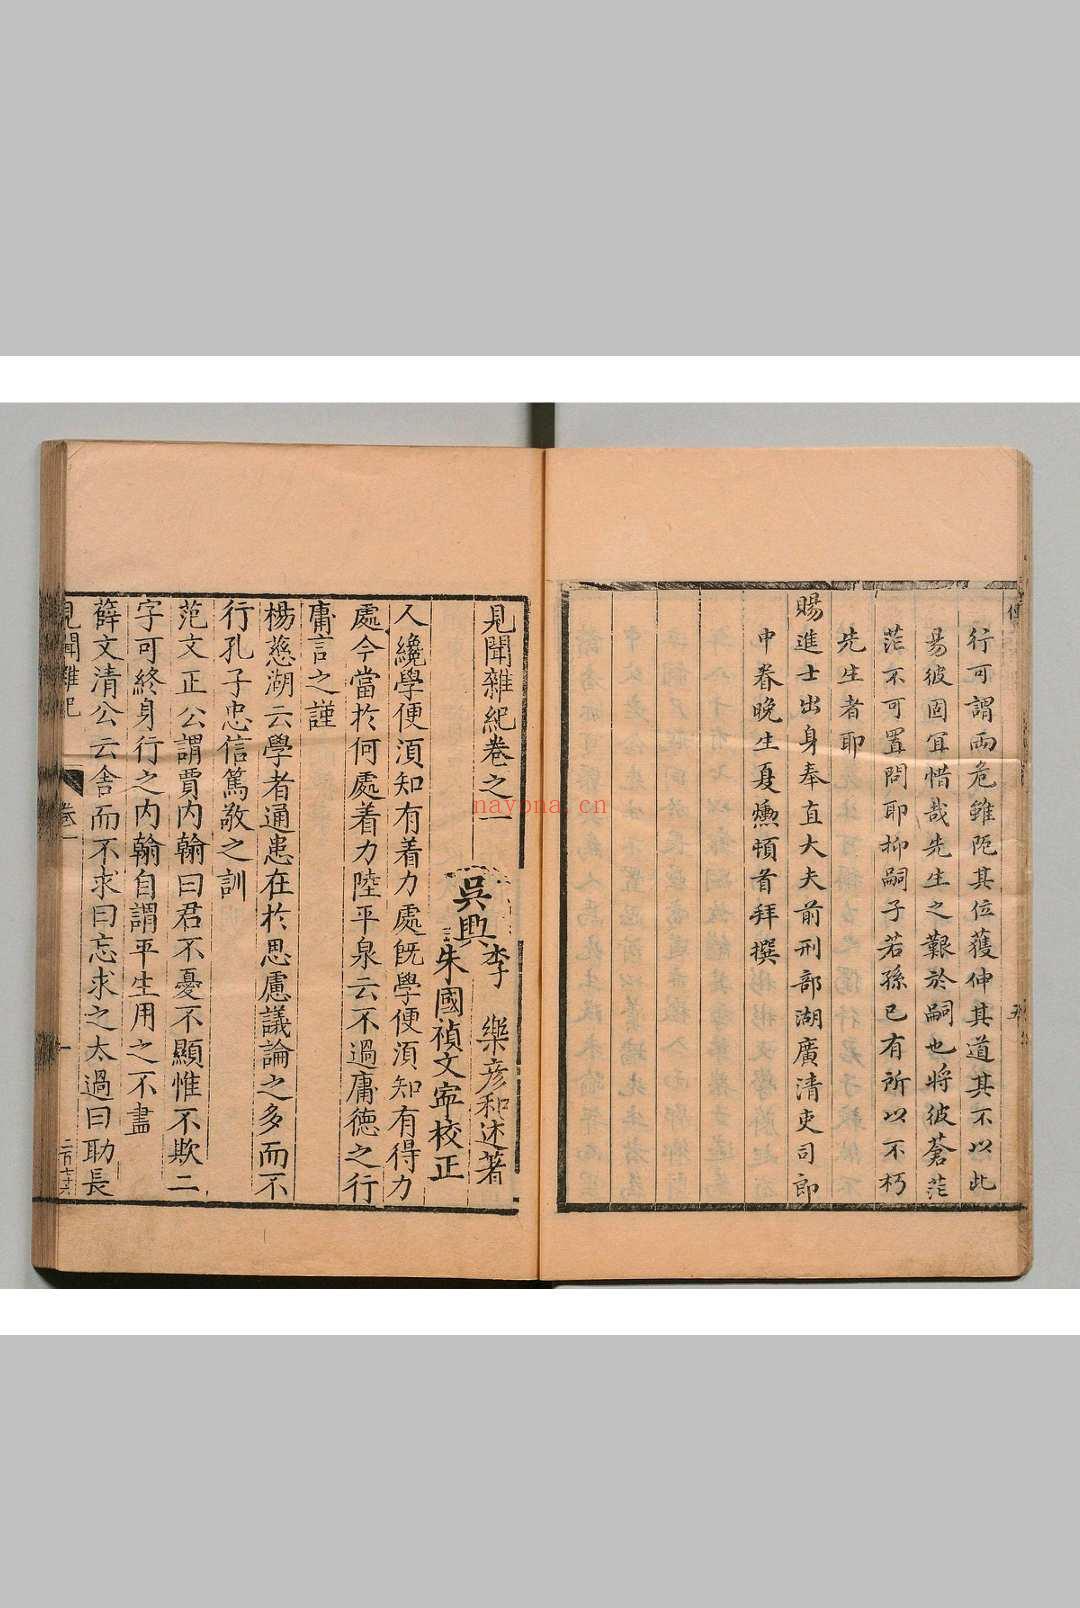 行可謂兩危雖阨其位獲伸其道其不以此
易彼固冝惜哉先生之艱於嗣也將彼蒼茫
茫不可置問耶抑嗣子若孫已有所以不朽
先生者耶
賜進士出身奉直大夫前刑部湖廣清吏司郎
中眷晚生夏爋頓首拜撰
見聞雜紀卷之一
吳興
李 樂彥和述著
朱國禎文寧校正
人纔學便須知有着力處旣學便須知有得力
處今當於何處着力陸平泉云不過庸德之行
庸言之謹
楊慈湖云學者通患在於思慮議論之多而不
行孔子忠信篤敬之訓
范文正公謂賈内翰曰君不憂不顯惟不欺二
字可終身行之内翰自謂平生用之不盡
薛文清公云舍而不求曰忘求之太過曰助長
見聞雜紀
卷一
一
nayona.cn